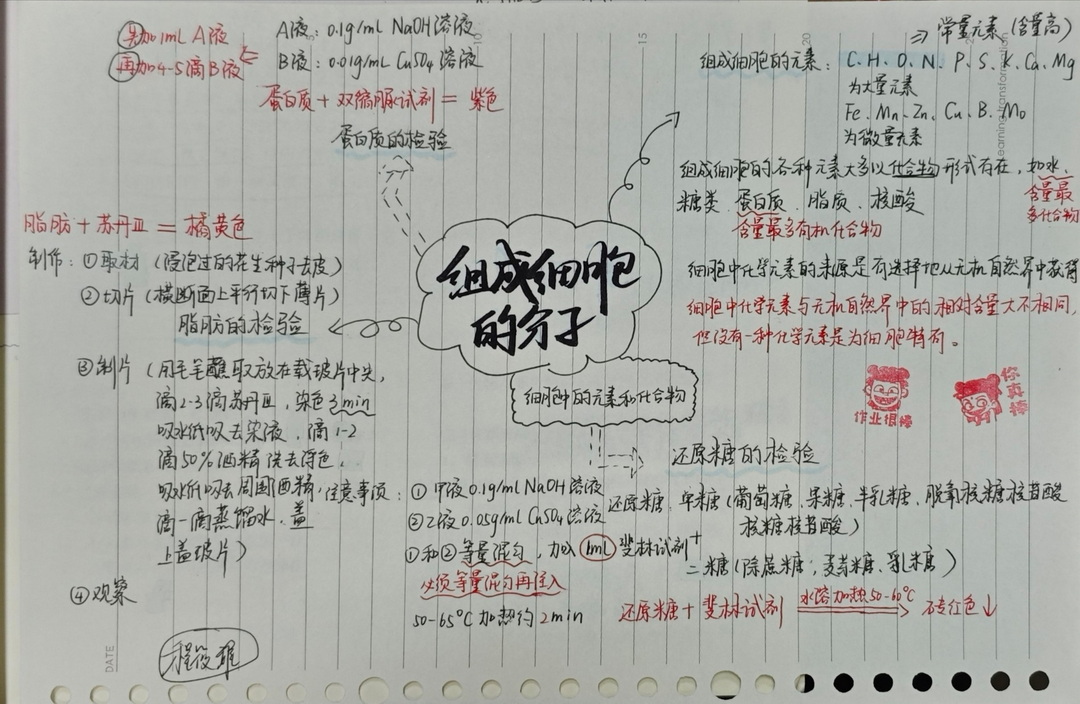 先加1mL A液
再加4-5滴B液
A液：0.1g/ml NaOH溶液
B液：0.01g/mL CuSO4溶液
蛋白质+双缩脲试剂=紫色
蛋白质的检验
脂肪+苏丹Ⅲ=橘黄色
制作：①取材（浸泡过的花生种子去皮）
②切片（横断面上平行切下薄片）
脂肪的检验
③制片（用毛笔蘸取放在载玻片中央，
滴2-3滴苏丹Ⅲ，染色3min
吸水纸吸去染液，滴1-2
滴50%酒精洗去浮色.
吸水纸吸去周围酒精，
滴一滴蒸馏水，盖
上盖玻片）
④观察
程俊
组成细胞
的分子
细胞中的元素和化合物
⇒常量元素（含量高）
组成细胞的元素：C、H、O、N、P、S、K、Ca、Mg
为大量元素
Fe、Mn、Zn、Cu、B、Mo
为微量元素
组成细胞的各种元素大多以化合物形式存在，如水、
含量最
多化合物
糖类、蛋白质、脂质、核酸
含量最多有机化合物
细胞中化学元素的来源是有选择地从无机自然界中获得
细胞中化学元素与无机自然界中的相对含量大不相同，
但没有一种化学元素是为细胞特有。
作业很棒
你真棒
还原糖的检验
注意事项：①甲液0.1g/ml NaOH溶液
②乙液0.05g/mL CuSO4溶液
①和②等量混匀，加入1mL斐林试剂
必须等量混匀再注入
50-65℃加热约2min
还原糖：单糖（葡萄糖、果糖、半乳糖、脱氧核糖核苷酸
核糖核苷酸）
+
二糖（除蔗糖；麦芽糖、乳糖）
还原糖+斐林试剂 水浴加热50-60℃ 砖红色↓
DATE
10
15
20